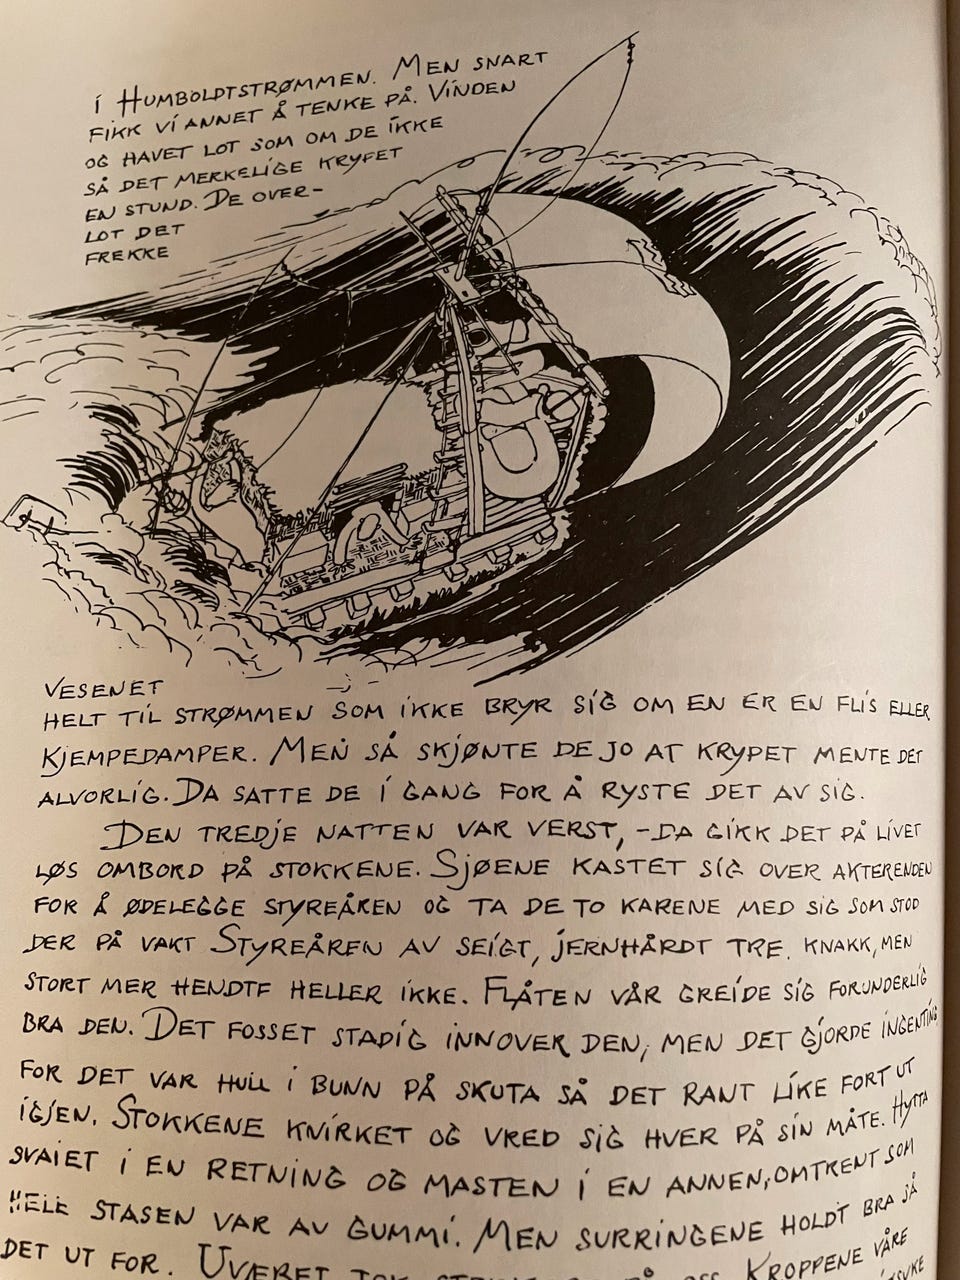 I HUMBOLDTSTRØMMEN. MEN SNART
FIKK VI ANNET Å TENKE PÅ. VINDEN
OG HAVET LOT SOM OM DE IKKE
SÅ DET MERKELIGE KRYPET
EN STUND. DE OVER-
LOT DET
FREKKE
VESENET
HELT TIL STRØMMEN SOM IKKE BRYR SIG OM EN ER EN FLIS ELLER
KJEMPEDAMPER. MEN SÅ SKJØNTE DE JO AT KRYPET MENTE DET
ALVORLIG. DA SATTE DE I GANG FOR Å RYSTE DET AV SIG.
DEN TREDJE NATTEN VAR VERST, -DA GIKK DET PÅ LIVET
LØS OMBORD PÅ STOKKENE. SJØENE KASTET SIG OVER AKTERENDEN
FOR Å ØDELEGGE STYREÅREN OG TA DE TO KARENE MED SIG SOM STOD
DER PÅ VAKT STYREÅREN AV SEIGT, JERNHÅRDT TRE. KNAKK, MEN
STORT MER HENDTE HELLER IKKE. FLÅTEN VÅR GREIDE SIG FORUNDERLIG
BRA DEN. DET FOSSET STADIG INNOVER DEN, MEN DET GJORDE INGENTING
FOR DET VAR HULL I BUNN PÅ SKUTA SÅ DET RANT LIKE FORT UT
IGJEN. STOKKENE KNIRKET OG VRED SIG HVER PÅ SIN MÅTE. HYTTA
SVAIET I EN RETNING OG MASTEN I EN ANNEN, OMTRENT SOM
HELE STASEN VAR AV GUMMI. MEN SURRINGENE HOLDT BRA SÅ
DET UT FOR. UVÆRET TOK PÅ OSS. KROPPENE VÅRE